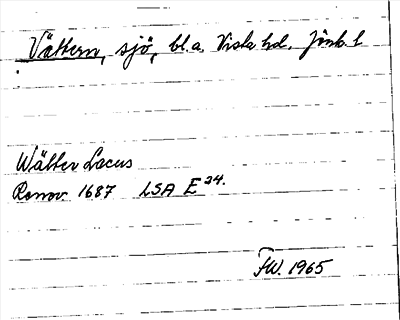 Vättern, sjö, bl.a. Vista hd. Jönk. l
Wätter Lacus
Renov. 1687 LSA E 24.
FW. 1965